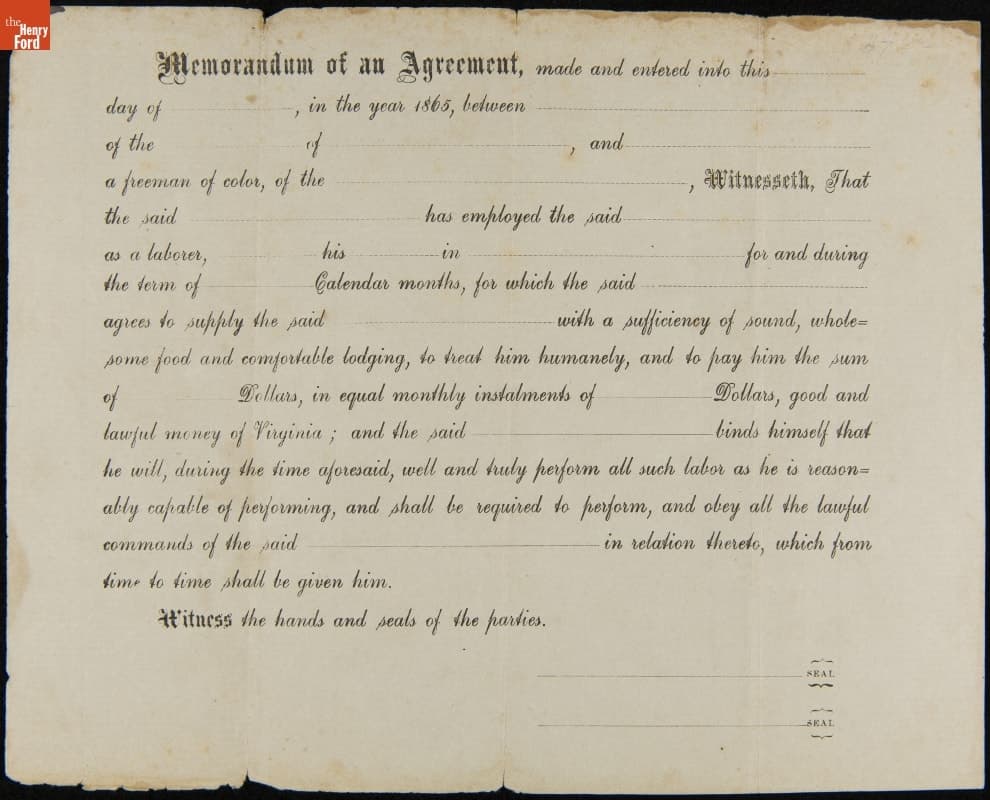 the
Henry
Ford
Memorandum of an Agreement, made and entered into this
day of , in the year 1865, between
of the of , and
a freeman of color, of the , Witnesseth, That
the said has employed the said
as a laborer, his in for and during
the term of Calendar months, for which the said
agrees to supply the said with a sufficiency of sound, whole=
some food and comfortable lodging, to treat him humanely, and to pay him the sum
of Dollars, in equal monthly instalments of Dollars, good and
lawful money of Virginia; and the said binds himself that
he will, during the time aforesaid, well and truly perform all such labor as he is reason=
ably capable of performing, and shall be required to perform, and obey all the lawful
commands of the said in relation thereto, which from
time to time shall be given him.
Witness the hands and seals of the parties.
SEAL
SEAL